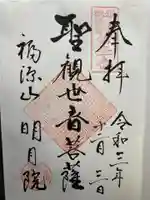 奉拝
令和三年
十二月三日
聖観世音菩薩
福源山
明月院